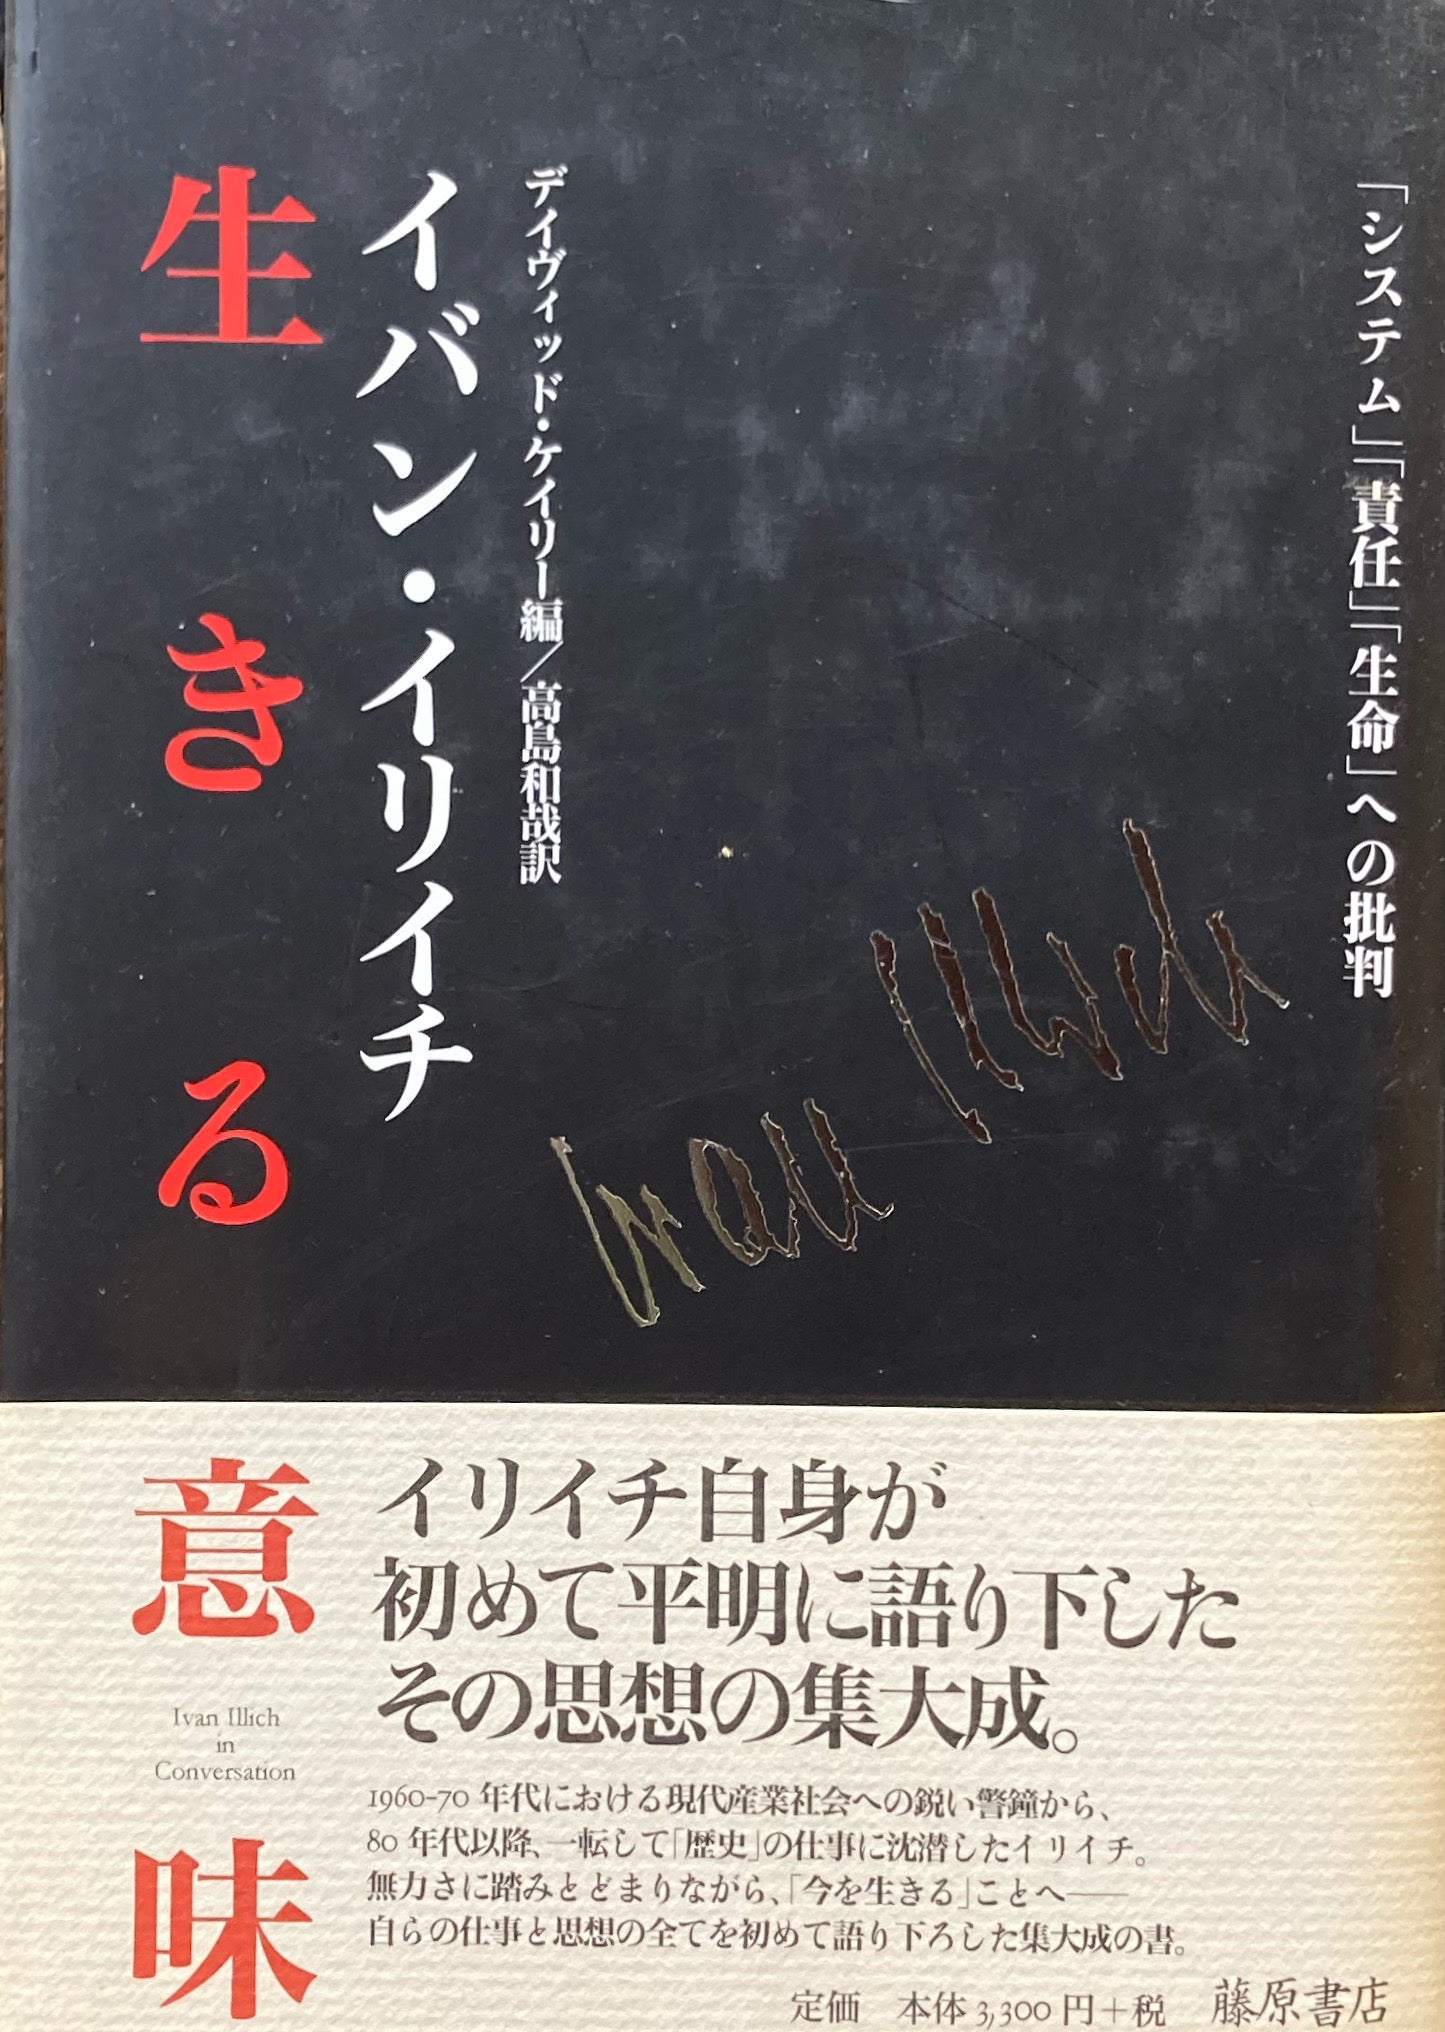 「システム」「責任」「生命」への批判
デイヴィッド・ケイリー編／高島和哉訳
イバン・イリイチ
生きる意味
Ivan Illich
イリイチ自身が
初めて平明に語り下した
その思想の集大成。
Ivan Illich
in
Conversation
1960-70年代における現代産業社会への鋭い警鐘から、
80年代以降、一転して「歴史」の仕事に沈潜したイリイチ。
無力さに踏みとどまりながら、「今を生きる」ことへ――
自らの仕事と思想の全てを初めて語り下ろした集大成の書。
定価 本体3,300円＋税 藤原書店